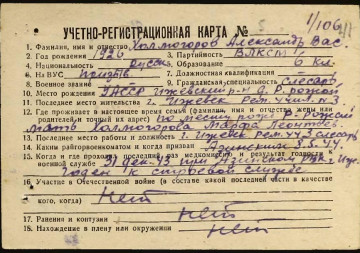 1/106
УЧЕТНО-РЕГИСТРАЦИОННАЯ КАРТА №
1. Фамилия, имя и отчество Холмогоров Александр Вас
2. Год рождения 1926 3. Партийность ВЛКСМ
4. Национальность русск 5. Образование 6 кл.
6. На ВУС призыв. 7. Должностная квалификация
8. Военное звание 9. Гражданская специальность слесарь
10. Место рождения УАССР Ижевский р-н
Последнее место жительства г. Ижевск Рем. учил. № 3
12. Где проживает в настоящее время семья (фамилия, имя и отчество жены или
родителей и точный их адрес) по месту рожд.
мать Холмогорова
13. Последнее место работы и должность г. Ижевск рем. уч. 3 слесарь
14. Каким райвоенкоматом и когда призван Азинским 3.5.44.
15. Когда и где проходил последний раз медкомиссию и результат годности
военной службе 31 дек. 43 при Азинском РВК г. Иж.
годен к строевой службе
16. Участие в Отечественной войне (в составе какой последней части в качестве
кого, когда) нет
17. Ранения и контузии нет
18. Нахождение в плену или окружении нет